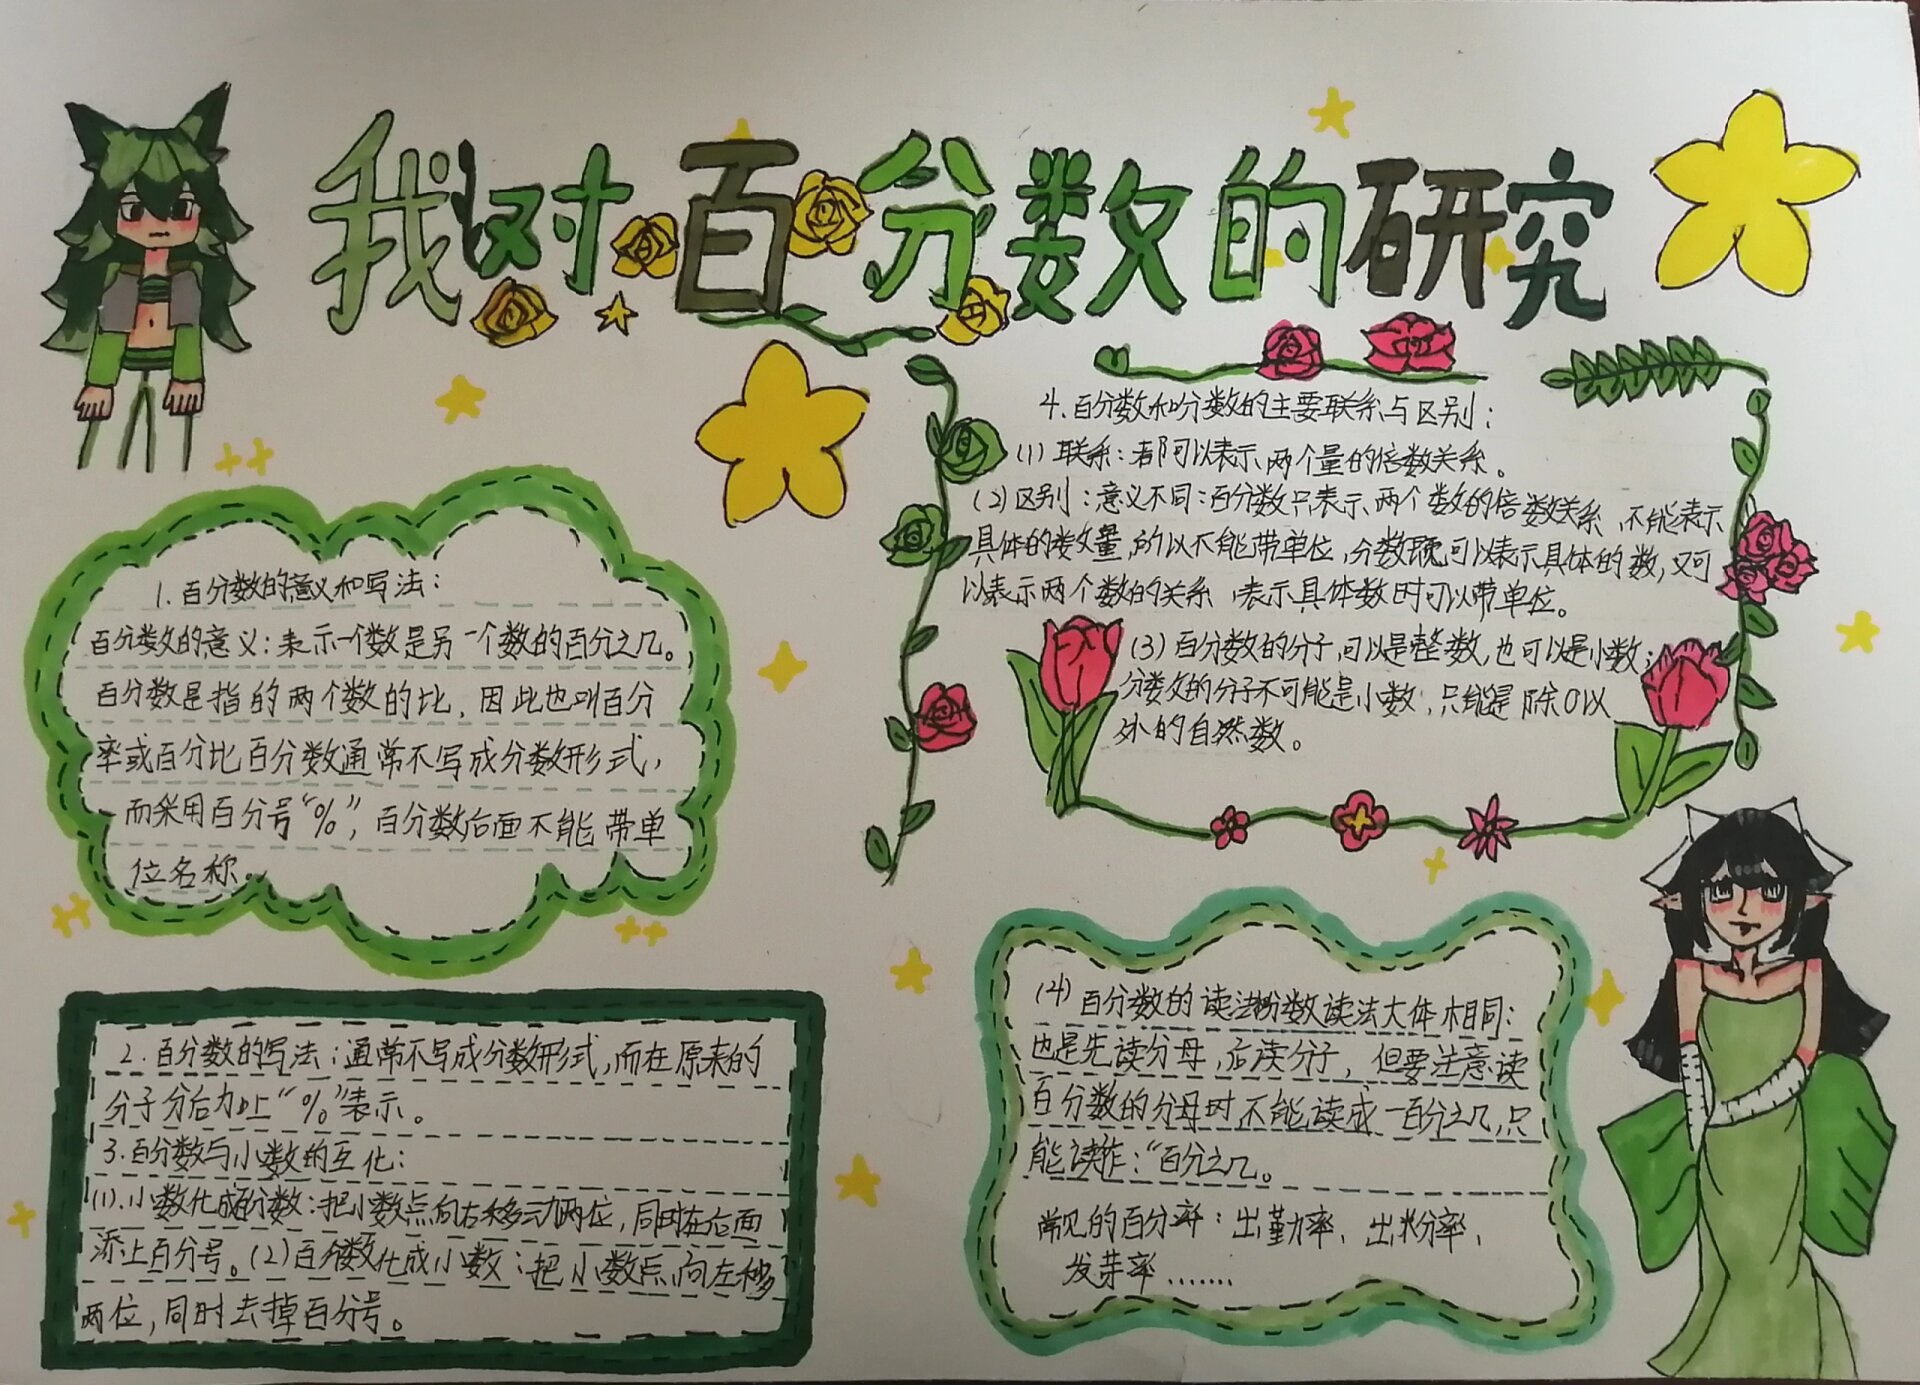 我对百分数的研究
1.百分数的意义和写法：
百分数的意义：表示一个数是另一个数的百分之几。
百分数是指的两个数的比，因此也叫百分
率或百分比百分数通常不写成分数形式，
而采用百分号“%”，百分数后面不能带单
位名称。
2.百分数的写法：通常不写成分数形式，而在原来的
分子分后加上“%”表示。
3.百分数与小数的互化：
(1).小数化成百分数：把小数点向右移动两位，同时在后面
添上百分号。(2)百分数化成小数：把小数点向左移
两位，同时去掉百分号。
4.百分数和分数的主要联系与区别：
(1)联系：都可以表示两个量的倍数关系。
(2)区别：意义不同：百分数只表示两个数的倍数关系，不能表示
具体的数量，所以不能带单位，分数既可以表示具体的数，又可
以表示两个数的关系，表示具体数时可以带单位。
(3)百分数的分子可以是整数，也可以是小数；
分数的分子不可能是小数，只能是除0以
外的自然数。
(4)百分数的读法和分数读法大体相同：
也是先读分母，后读分子，但要注意读
百分数的分母时不能读成一百分之几，只
能读作：“百分之几。
常见的百分率：出勤率、出粉率、
发芽率.......